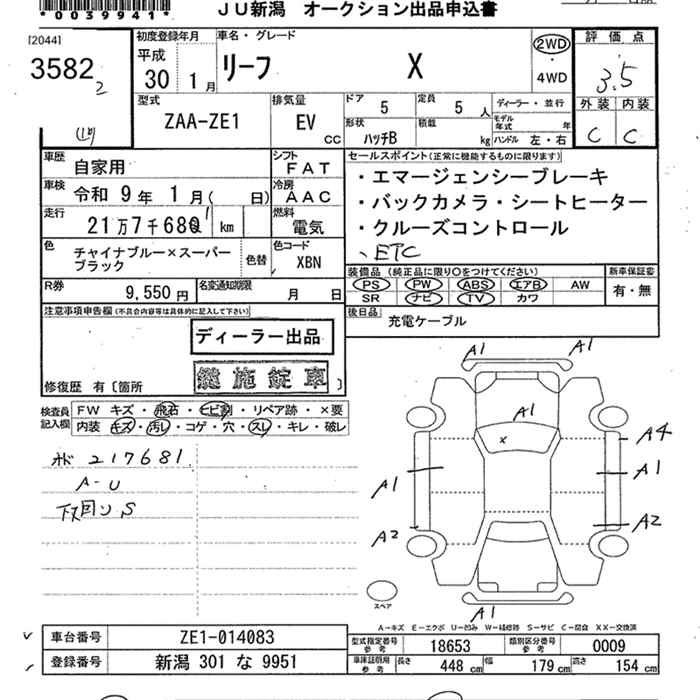 *0039941*
JU新潟 オークション出品申込書
[2044]
3582
2
初度登録年月
平成
30 1月
車名・グレード
リーフ X
2WD
・
4WD
評価点
3.5
外装 内装
C C
型式
ZAA-ZE1
排気量
EV
CC
ドア 5
定員 5人
ディーラー・並行
形状
ハッチB
積載
kg
モデル年式 年
ハンドル 左・右
車歴
自家用
シフト
FAT
セールスポイント(正常に機能するものに限ります)
・エマージェンシーブレーキ
・バックカメラ・シートヒーター
・クルーズコントロール
、ETC
車検
令和 9年 1月( 日)
冷房
AAC
走行
21万7千680 1 km
燃料
電気
色
チャイナブルー×スーパーブラック
色替
色コード
XBN
R券
9,550円
名変通知期限
月 日
装備品(純正品に限り○をつけてください)
PS PW ABS エアB AW
SR ナビ TV カワ
新車保証書
有・無
後日品
充電ケーブル
注意事項申告欄(不具合内容等は具体的に記入して下さい)
ディーラー出品
鑑施錠車
修復歴 有〔箇所 〕
検査員記入欄
FW キズ・飛石・ヒビ割・リペア跡・×要
内装 キズ・汚し・コゲ・穴・スレ・キレ・破レ
217681
A-U
下回りS
A1 A1
A1
x
A4
A1 A1
A2 A2
A1
スペア
A-キズ E-エクボ U-凹み W-補修跡 S-サビ C-腐食 XX-交換済
車台番号
ZE1-014083
登録番号
新潟 301 な 9951
型式指定番号
参考
18653
類別区分番号
参考
0009
車庫証明用
参考
長さ 448 cm
幅 179 cm
高さ 154 cm